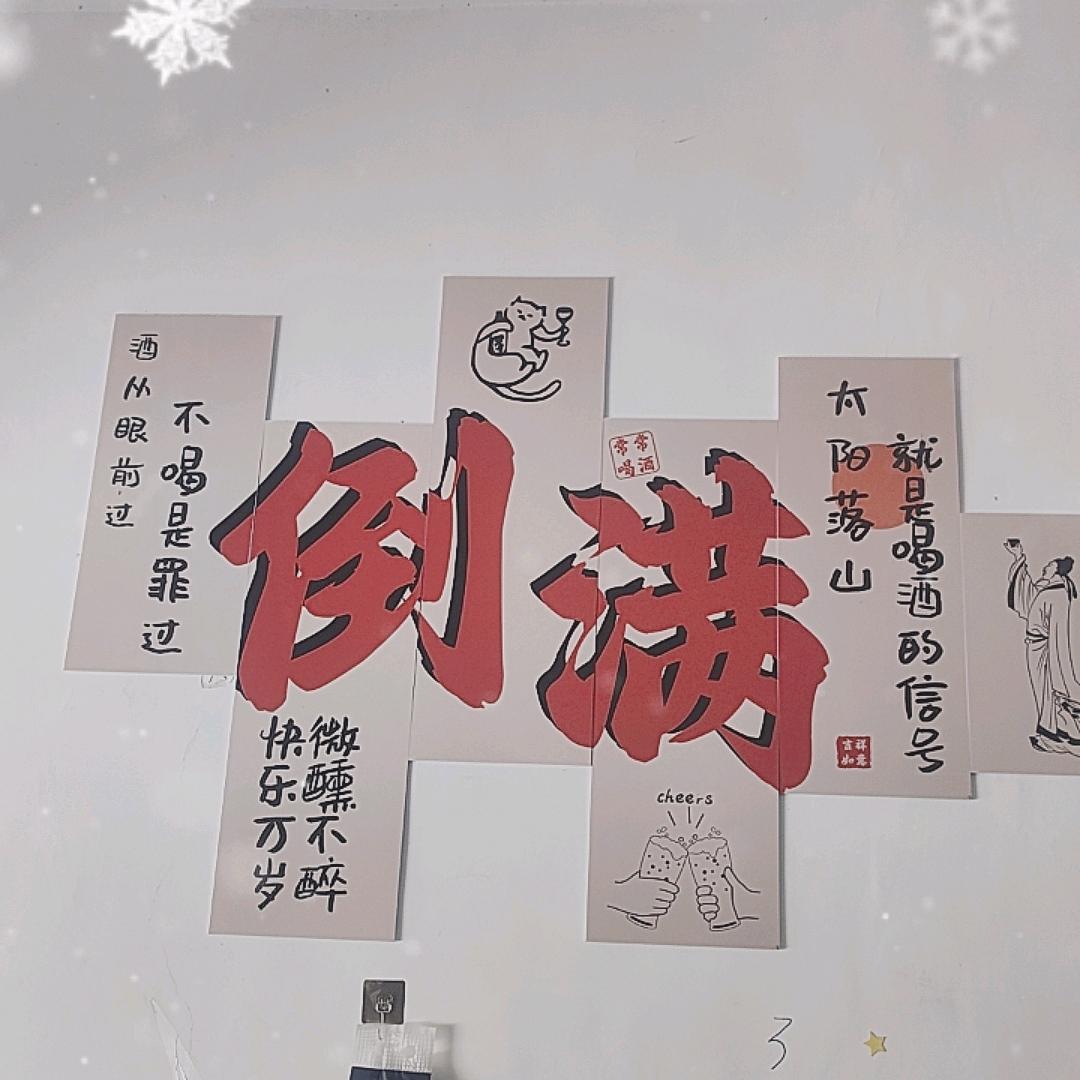 酒从眼前过
不喝是罪过
倒满
微醺不醉
快乐万岁
常常
喝酒
cheers
太阳落山
就是喝酒的信号
吉祥
如意
3